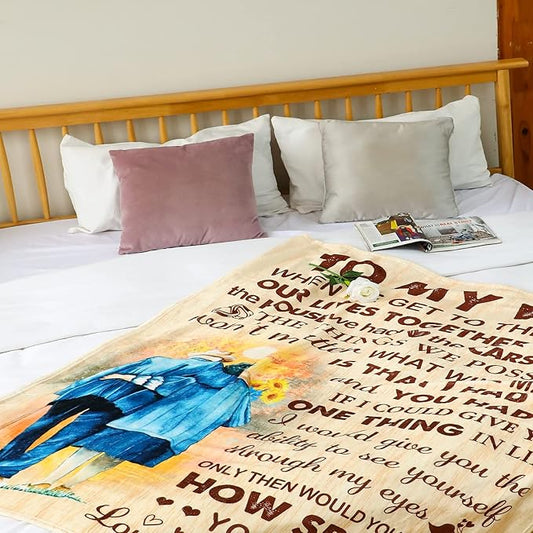 TO MY W
WHEN GET TO TH
OUR LIVES TOGETHER
the HOUSE we had the CARS
THE THINGS WE POSS
won't matter WHAT WILL M
IS THAT I HAD
and YOU HAD
IF I COULD GIVE Y
ONE THING IN LI
I would give you the
ability to see yourself
through my eyes
ONLY THEN WOULD YOU
HOW SP
YO
Lo